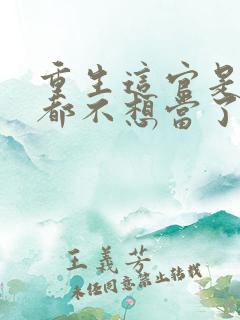 重生這官是
都不想當了
王義芳
未经同意禁止转载